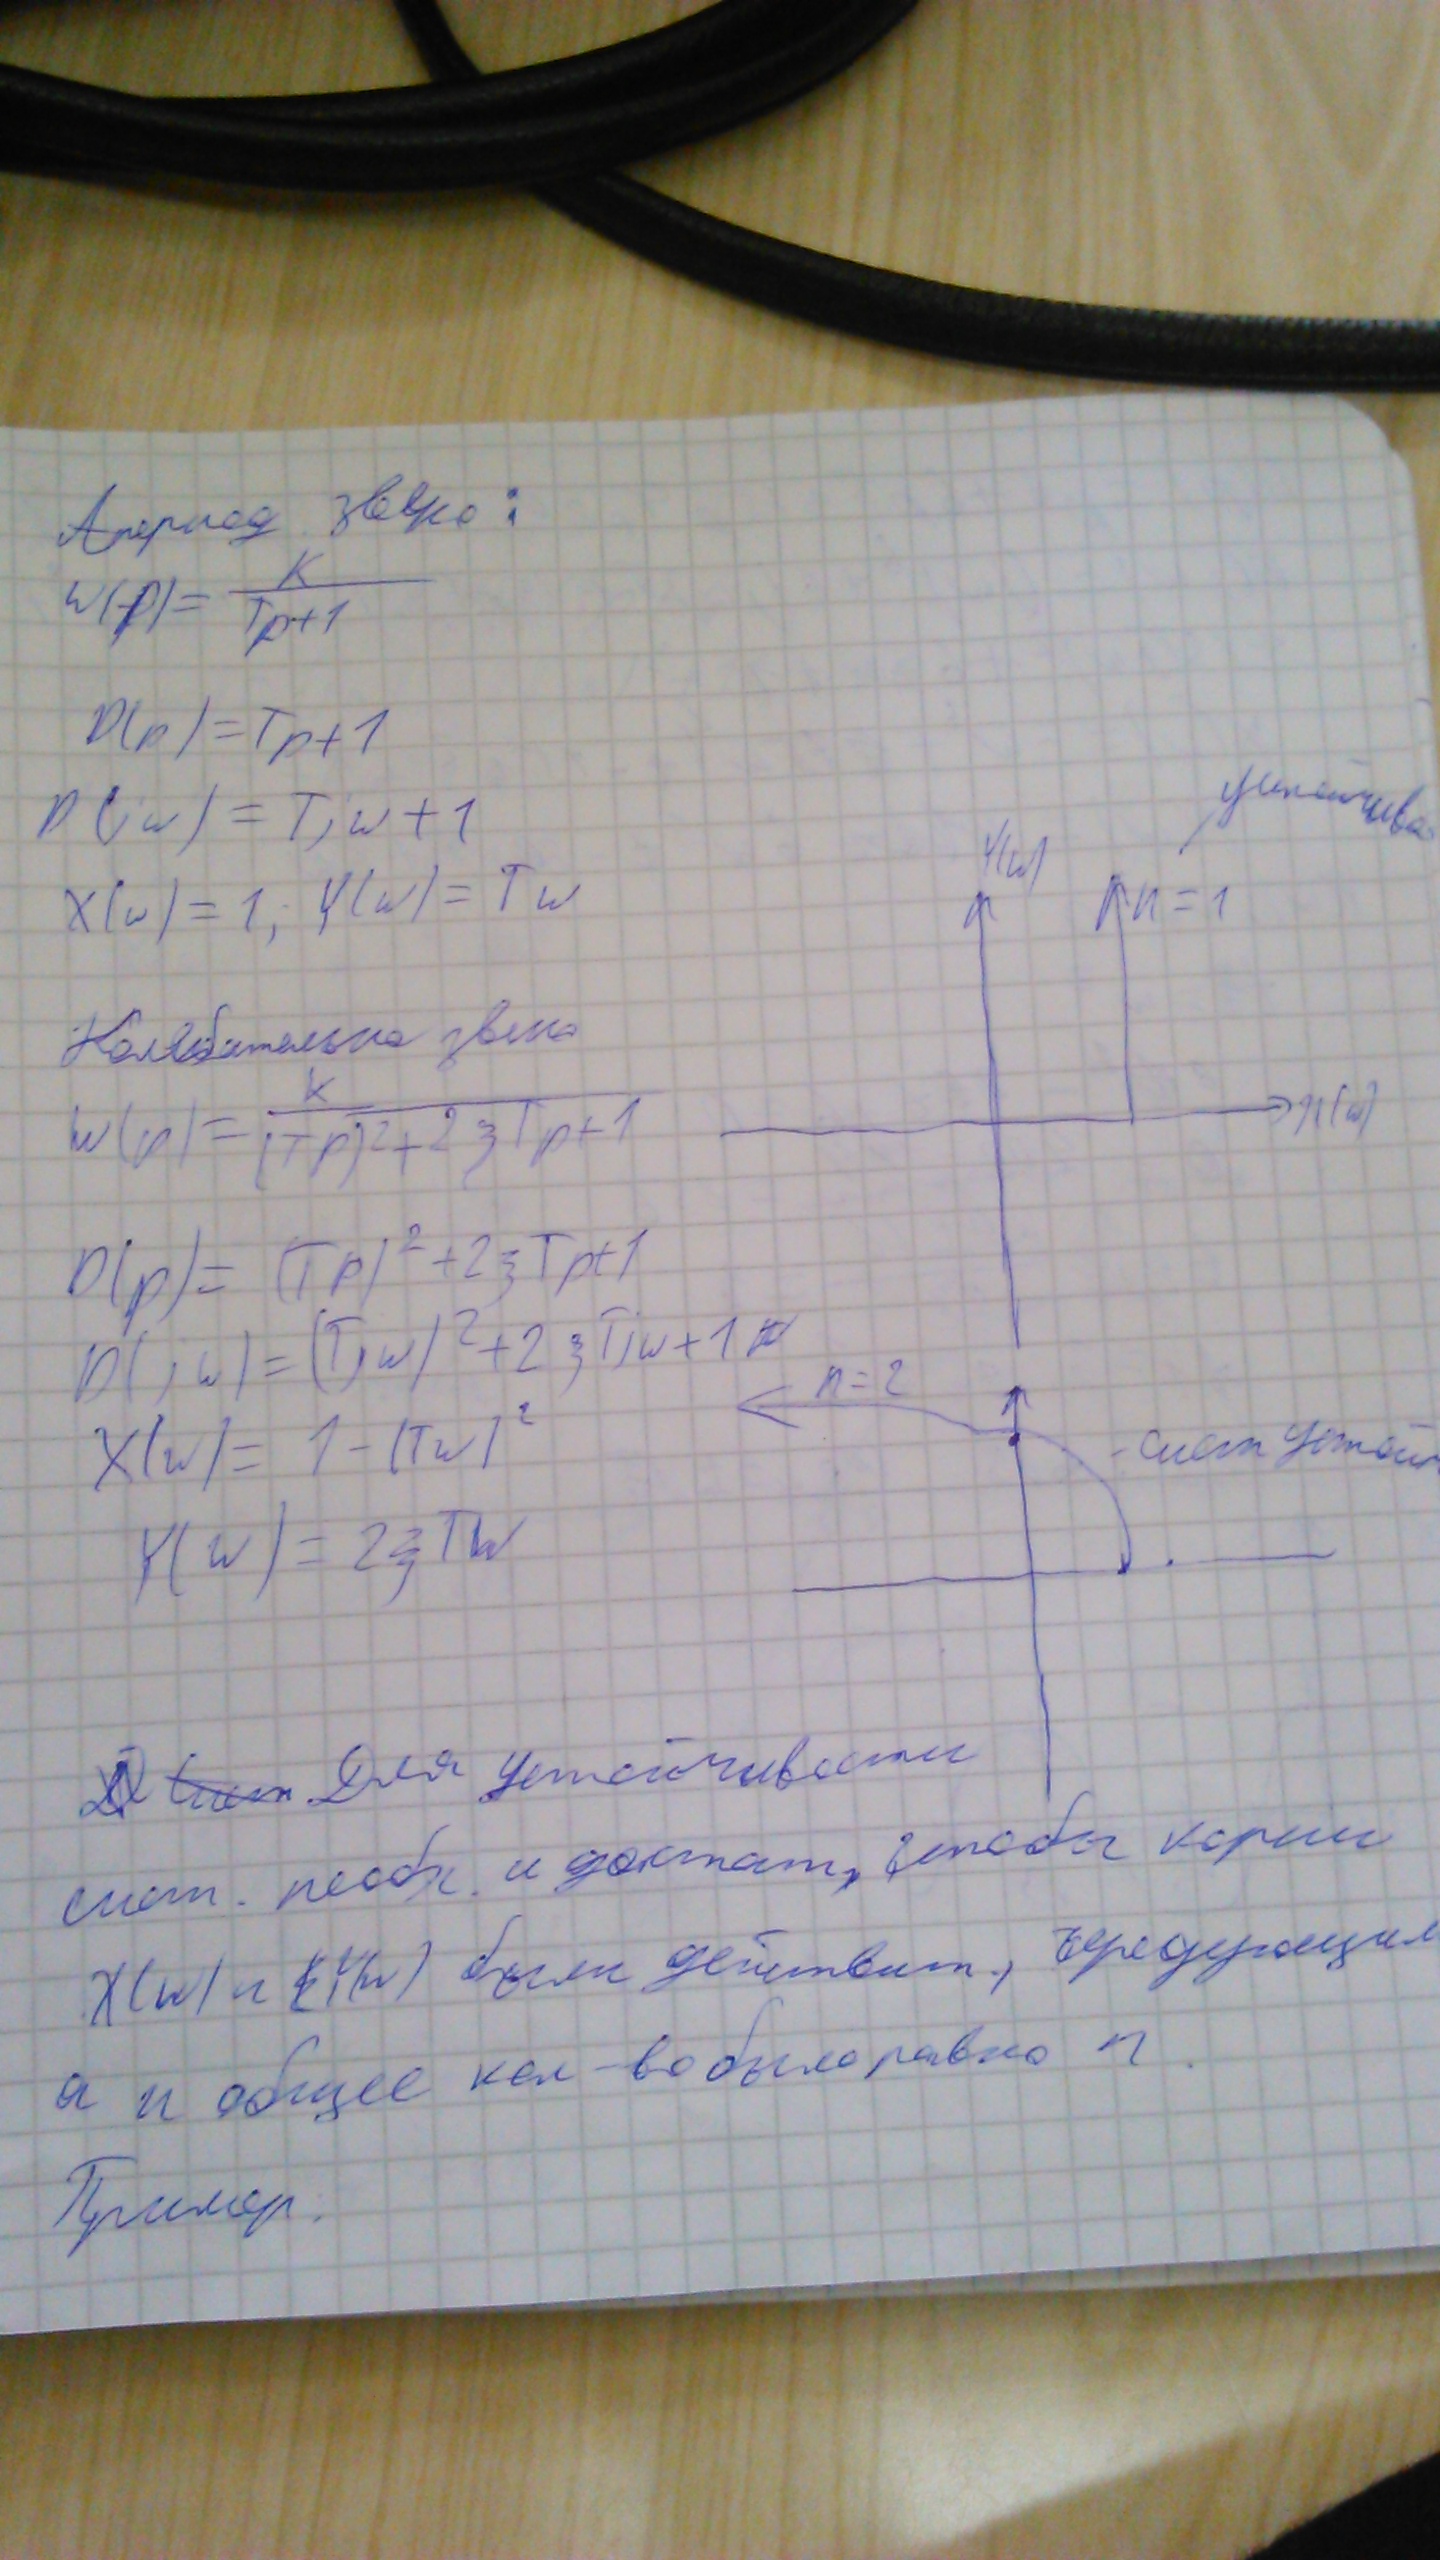 Апериод. звено:
W(p) = K / Tp+1
D(p) = Tp+1
D(jw) = Tjw+1
X(w) = 1; Y(w) = Tw
устойчива
Y(w)
n=1
X(w)
Колебательно звено
W(p) = K / (Tp)²+2ξTp+1
D(p) = (Tp)²+2ξTp+1
D(jw) = (Tjw)²+2ξTjw+1
X(w) = 1-(Tw)²
Y(w) = 2ξTw
n=2
- сист устойч
Для устойчивости
сист. необх. и достат, чтобы корни
X(w) и Y(w) были действит., чередующим
а и общее кол-во было равно n.
Пример.